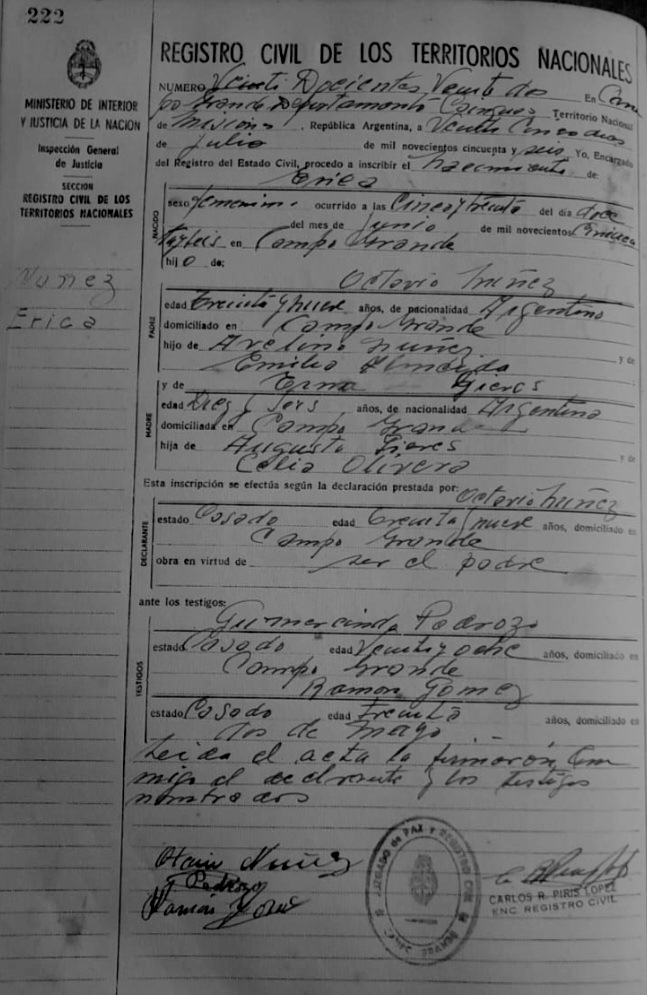 222
MINISTERIO DE INTERIOR
Y JUSTICIA DE LA NACION
Inspección General
de Justicia
SECCION
REGISTRO CIVIL DE LOS
TERRITORIOS NACIONALES
Nuñez
Erica
REGISTRO CIVIL DE LOS TERRITORIOS NACIONALES
NUMERO Veinti Docientos Veinte dos En Cam
po Grande Departamento Cainguas Territorio Nacional
de Misiones, República Argentina, a Veinti Cinco dias
de Julio de mil novecientos cincuenta y seis Yo, Encargado
del Registro del Estado Civil, procedo a inscribir el nacimiento de:
Erica
NACIDO
sexo femenino ocurrido a las Cinco y treinta del día doce
del mes de Junio de mil novecientos Cincuen
ta y seis en Campo Grande
hijo de:
Octavio Nuñez
PADRE
edad Treinta y nueve años, de nacionalidad Argentino
domiciliado en Campo Grande
hijo de Avelino Nuñez y de
Emilia Almeida
MADRE
y de Erma Gieres
edad Diez y Seis años, de nacionalidad Argentina
domiciliada en Campo Grande
hija de Augusto Gieres y de
Celia Olivera
Esta inscripción se efectúa según la declaración prestada por: Octavio Nuñez
DECLARANTE
estado Casado edad treinta y nueve años, domiciliado en
Campo Grande
obra en virtud de ser el padre
ante los testigos:
Gumercindo Pedrozo
TESTIGOS
estado Casado edad Veinti y ocho años, domiciliado en
Campo Grande
Ramon Gomez
estado Casado edad treinta años, domiciliado en
dos de Mayo
Leida el acta la firmaron Con
migo el declarante y los testigos
nombrados
Nuñez
Pedrozo
Ramón
JUZGADO de PAZ Y REGISTRO CIVIL
CARLOS R. PIRIS LOPEZ
ENC. REGISTRO CIVIL